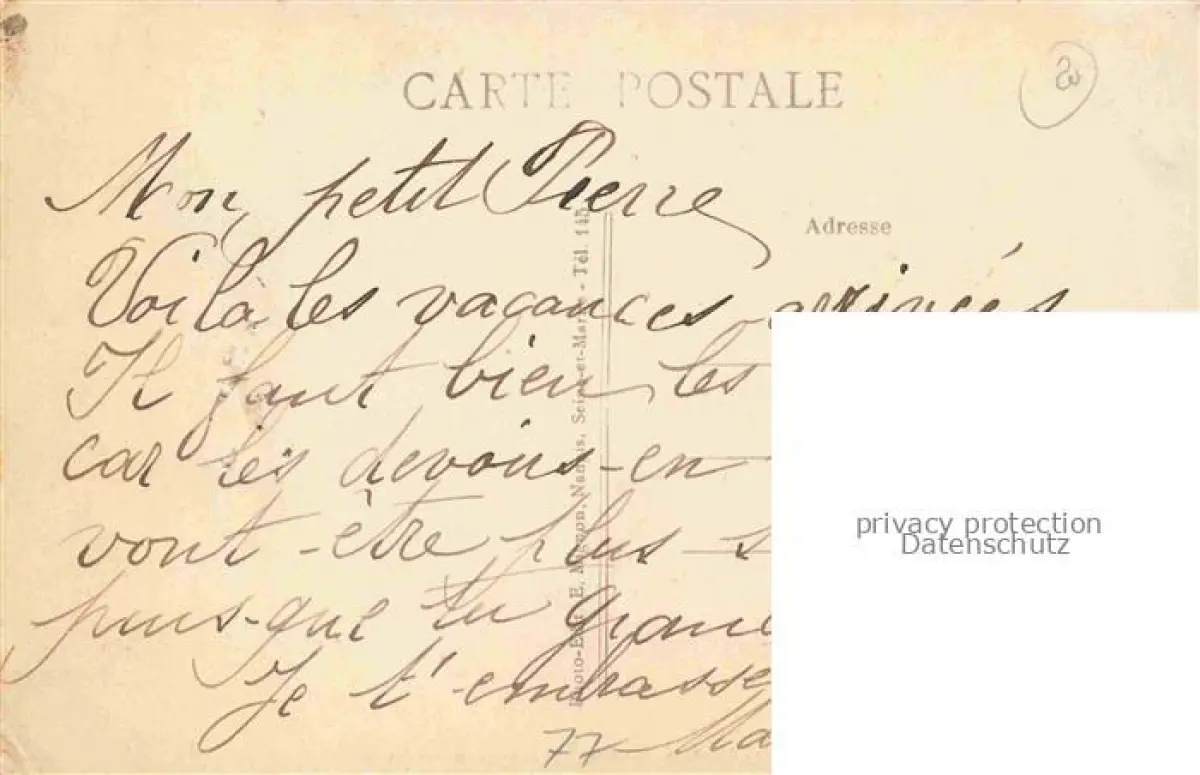 CARTE POSTALE
20
Mon petit Pierre
Adresse
Voilà les vacances arrivées
Il faut bien les
car les devoirs en
vont être plus s
puis-que tu grand
Je t'embrasse
77 Ma
Photo-Edit. E. Mignon, Nangis, Seine-et-Marne - Tél. 145
privacy protection
Datenschutz